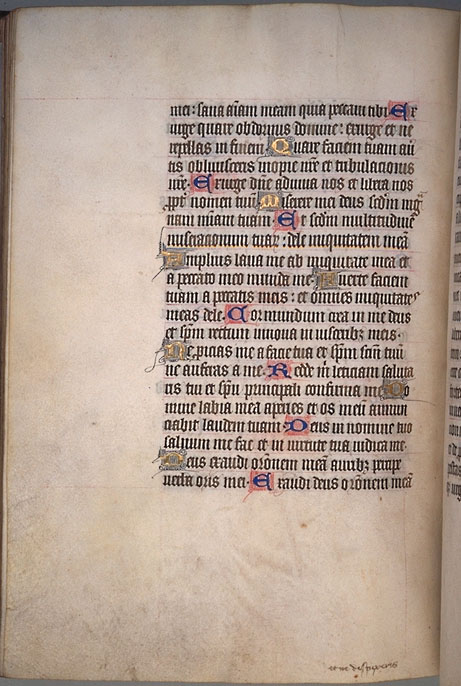 mei: sana aīam meam quia peccaui tibi Ex
urge quare obdormis domine: exurge et ne
repellas in finem Quare faciem tuam au
tis obliuisceris inopie nr̄e et tribulacionis
nr̄e. Exurge dn̄e adiuua nos et libera nos
ꝓpt̄ nomen tuū. Miserere mei deus sc̄dm mag
nam mīam tuam. Et sc̄dm multitudinē
miseracionum tuaꝝ: dele iniquitatem meā
Amplius laua me ab iniquitate mea et
a peccato meo munda me. Auerte faciem
tuam a peccatis meis: et omnes iniquitates
meas dele. Cor mundum crea in me deus
et sp̄m rectum innoua in uisceribꝫ meis.
Ne proicias me a facie tua et sp̄m sc̄m tuū
ne auferas a me. Redd m̄ leticiam saluta
ris tui et sp̄u principali confirma me Do
mine labia mea aperies et os meū annun
ciabit laudem tuam. Deus in nomine tuo
saluum me fac et in uirtute tua iudica me.
Deus exaudi or̄onem meā auribꝫ percipe
uerba oris mei. Exaudi deus or̄onem meā